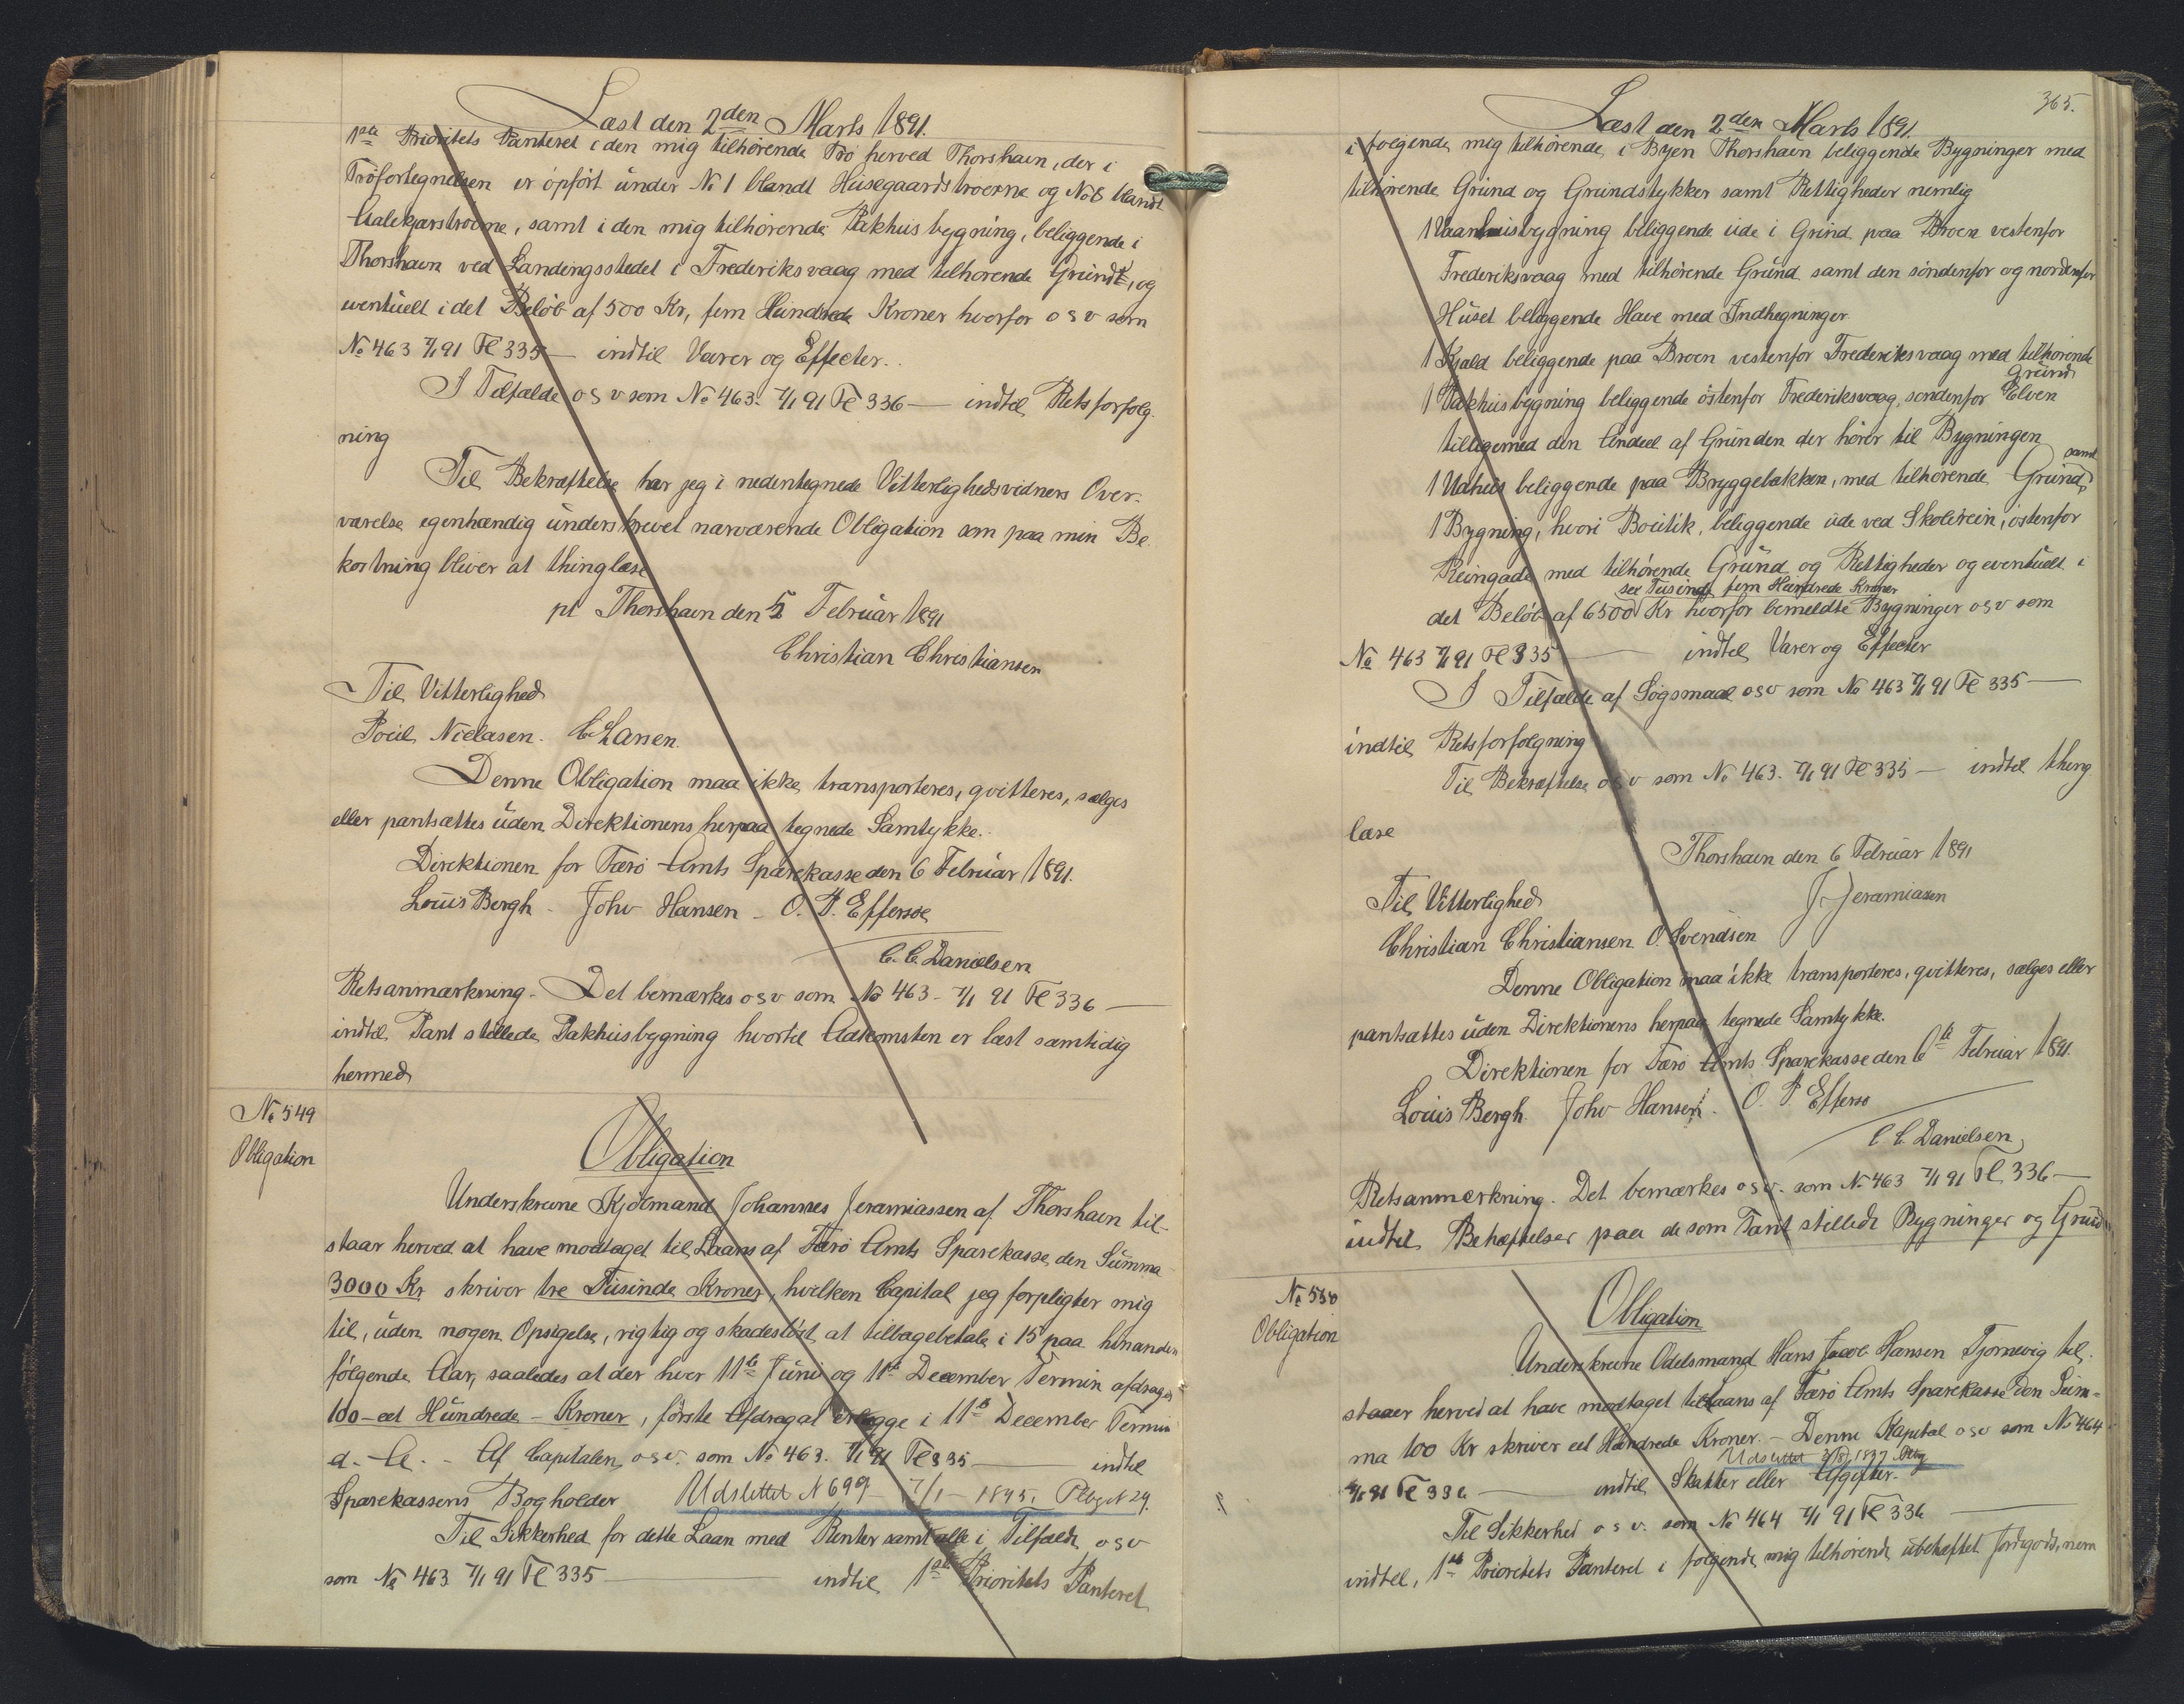 Læst den 2den Marts 1891.
1ste Prioritets Panteret i den mig tilhørende Trö herved Thorshavn, der i
Tröfortegnelsen er opført under No 1 blandt Husegaardströerne og No 8 blandt
Aalekjærströerne, samt i den mig tilhørende Pakhusbygning, beliggende i
Thorshavn ved Landingsstedet i Frederiksvaag med tilhørende Grund, og
eventuelt i det Beløb af 500 Kr, fem Hundrede Kroner hvorfor o s v som
No 463 7/1 91 Fl 335 — indtil Varer og Effecter.
I Tilfælde o s v som No 463. 7/1 91 Fl 336 — indtil Retsforfølg-
ning
Til Bekræftelse har jeg i nedentegnede Vitterlighedsvidners Over-
værelse egenhændig underskrevet nærværende Obligation som paa min Be-
kostning bliver at thinglæse
pt Thorshavn den 5 Februar 1891
Christian Christiansen
Til Vitterlighed
Poul Nielasen. C Hansen.
Denne Obligation maa ikke transporteres, qvitteres, sælges
eller pantsættes uden Direktionens herpaa tegnede Samtykke.
Direktionen for Færö Amts Sparekasse den 6 Februar 1891.
Louis Bergh - Johv Hansen - O. P. Effersøe
C. C. Danielsen
Retsanmærkning. Det bemærkes o s v som No 463 - 7/1 91 Fl 336 —
indtil Pant stillede Pakhusbygning hvortil Adkomsten er læst samtidig
hermed
No 549
Obligation
Obligation
Underskrevne Kjøbmand Johannes Jeramiassen af Thorshavn til-
staar herved at have modtaget til Laans af Færö Amts Sparekasse, den Summa
3000 Kr skriver tre Tusinde Kroner, hvilken Capital jeg forpligter mig
til, uden nogen Opsigelse, rigtig og skadesløst at tilbagebetale i 15 paa hinanden
følgende Aar, saaledes at der hver 11te Juni og 11te December Termin afdrages
100 - eet Hundrede - Kroner, første Afdrag at erlægge i 11te December Termin
d. A. - Af Capitalen, o s v. som No 463. 7/1 91 Fl 335 — indtil
Sparekassens Bogholder Udslettet N 699 7/1 - 1895. Pbg N 29.
Til Sikkerhed for dette Laan med Renter samt alle i Tilfælde o s v
som No 463 7/1 91 Fl 335 — indtil 1ste Prioritets Panteret
365.
Læst den 2den Marts 1891.
i følgende mig tilhørende, i Byen Thorshavn beliggende Bygninger med
tilhørende Grund og Grundstykker samt Rettigheder nemlig
1 Vaanhusbygning beliggende ude i Grind paa Broen vestenfor
Frederiksvaag med tilhørende Grund samt den søndenfor og nordenfor
Huset beliggende Have med Indhegninger
1 Kjald beliggende paa Broen vestenfor Frederiksvaag med tilhørende
Grund
1 Pakhusbygning beliggende östenfor Frederiksvaag, søndenfor Elven
tilligemed den Andeel af Grunden der hører til Bygningen
samt
1 Udhus beliggende paa Bryggebakken, med tilhørende Grund,
1 Bygning, hvori Boutik, beliggende ude ved Skoletrein, östenfor
Reingade med tilhørende Grund og Rettigheder og eventuelt i
sex Tusinde fem Hundrede Kroner
det Beløb af 6500 Kr hvorfor bemeldte Bygninger o s v som
No 463 7/1 91 Fl 335 — indtil Varer og Effecter
I Tilfælde af Søgsmaal o s v som No 463 7/1 91 Fl 335 —
indtil Retsforfølgning
Til Bekræftelse o s v som No 463. 7/1 91 Fl 335 — indtil thing
læse
Thorshavn den 6 Februar 1891
Til Vitterlighed J. Jeramiasen
Christian Christiansen O. Svendsen
Denne Obligation maa ikke transporteres, qvitteres, sælges eller
pantsættes uden Direktionens herpaa tegnede Samtykke.
Direktionen for Færö Amts Sparekasse den 6te Februar 1891.
Louis Bergh. Johv Hansen. O. P Effersö
C. C. Danielsen
Retsanmærkning. Det bemærkes o s v. som No 463 7/1 91 Fl. 336 —
indtil Behæftelser paa de som Pant stillede Bygninger og Grund
No 550
Obligation
Obligation
Underskrevne Odelsmand Hans Jacob Hansen Tjørnevig til-
staaer herved at have modtaget til Laans af Færö Amts Sparekasse den Sum-
ma 100 Kr skriver eet Hundrede Kroner. - Denne Kapital o s v som No 464
Udslettet 1897
7/1 91 Fl 336 — indtil Skatter eller Afgifter.
Til Sikkerhed o s v. som No 464 7/1 91 Fl 336 —
indtil, 1ste Prioritets Panteret i følgende mig tilhørende ubehæftet Jordgods, nem